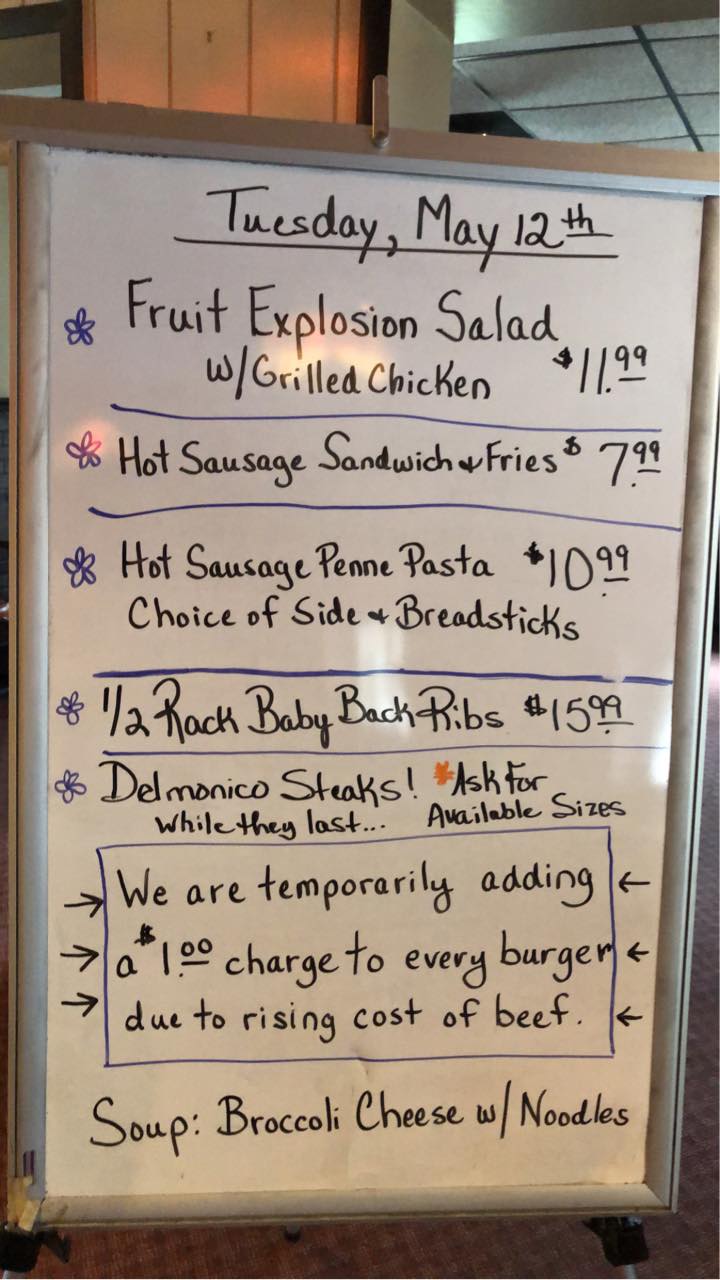 Tuesday, May 12th
Fruit Explosion Salad
w/Grilled Chicken $11.99
Hot Sausage Sandwich & Fries $7.99
Hot Sausage Penne Pasta $10.99
Choice of Side & Breadsticks
1/2 Rack Baby Back Ribs $15.99
Delmonico Steaks! *Ask For
While they last... Available Sizes
→ We are temporarily adding ←
→ a $1.00 charge to every burger ←
→ due to rising cost of beef. ←
Soup: Broccoli Cheese w/ Noodles